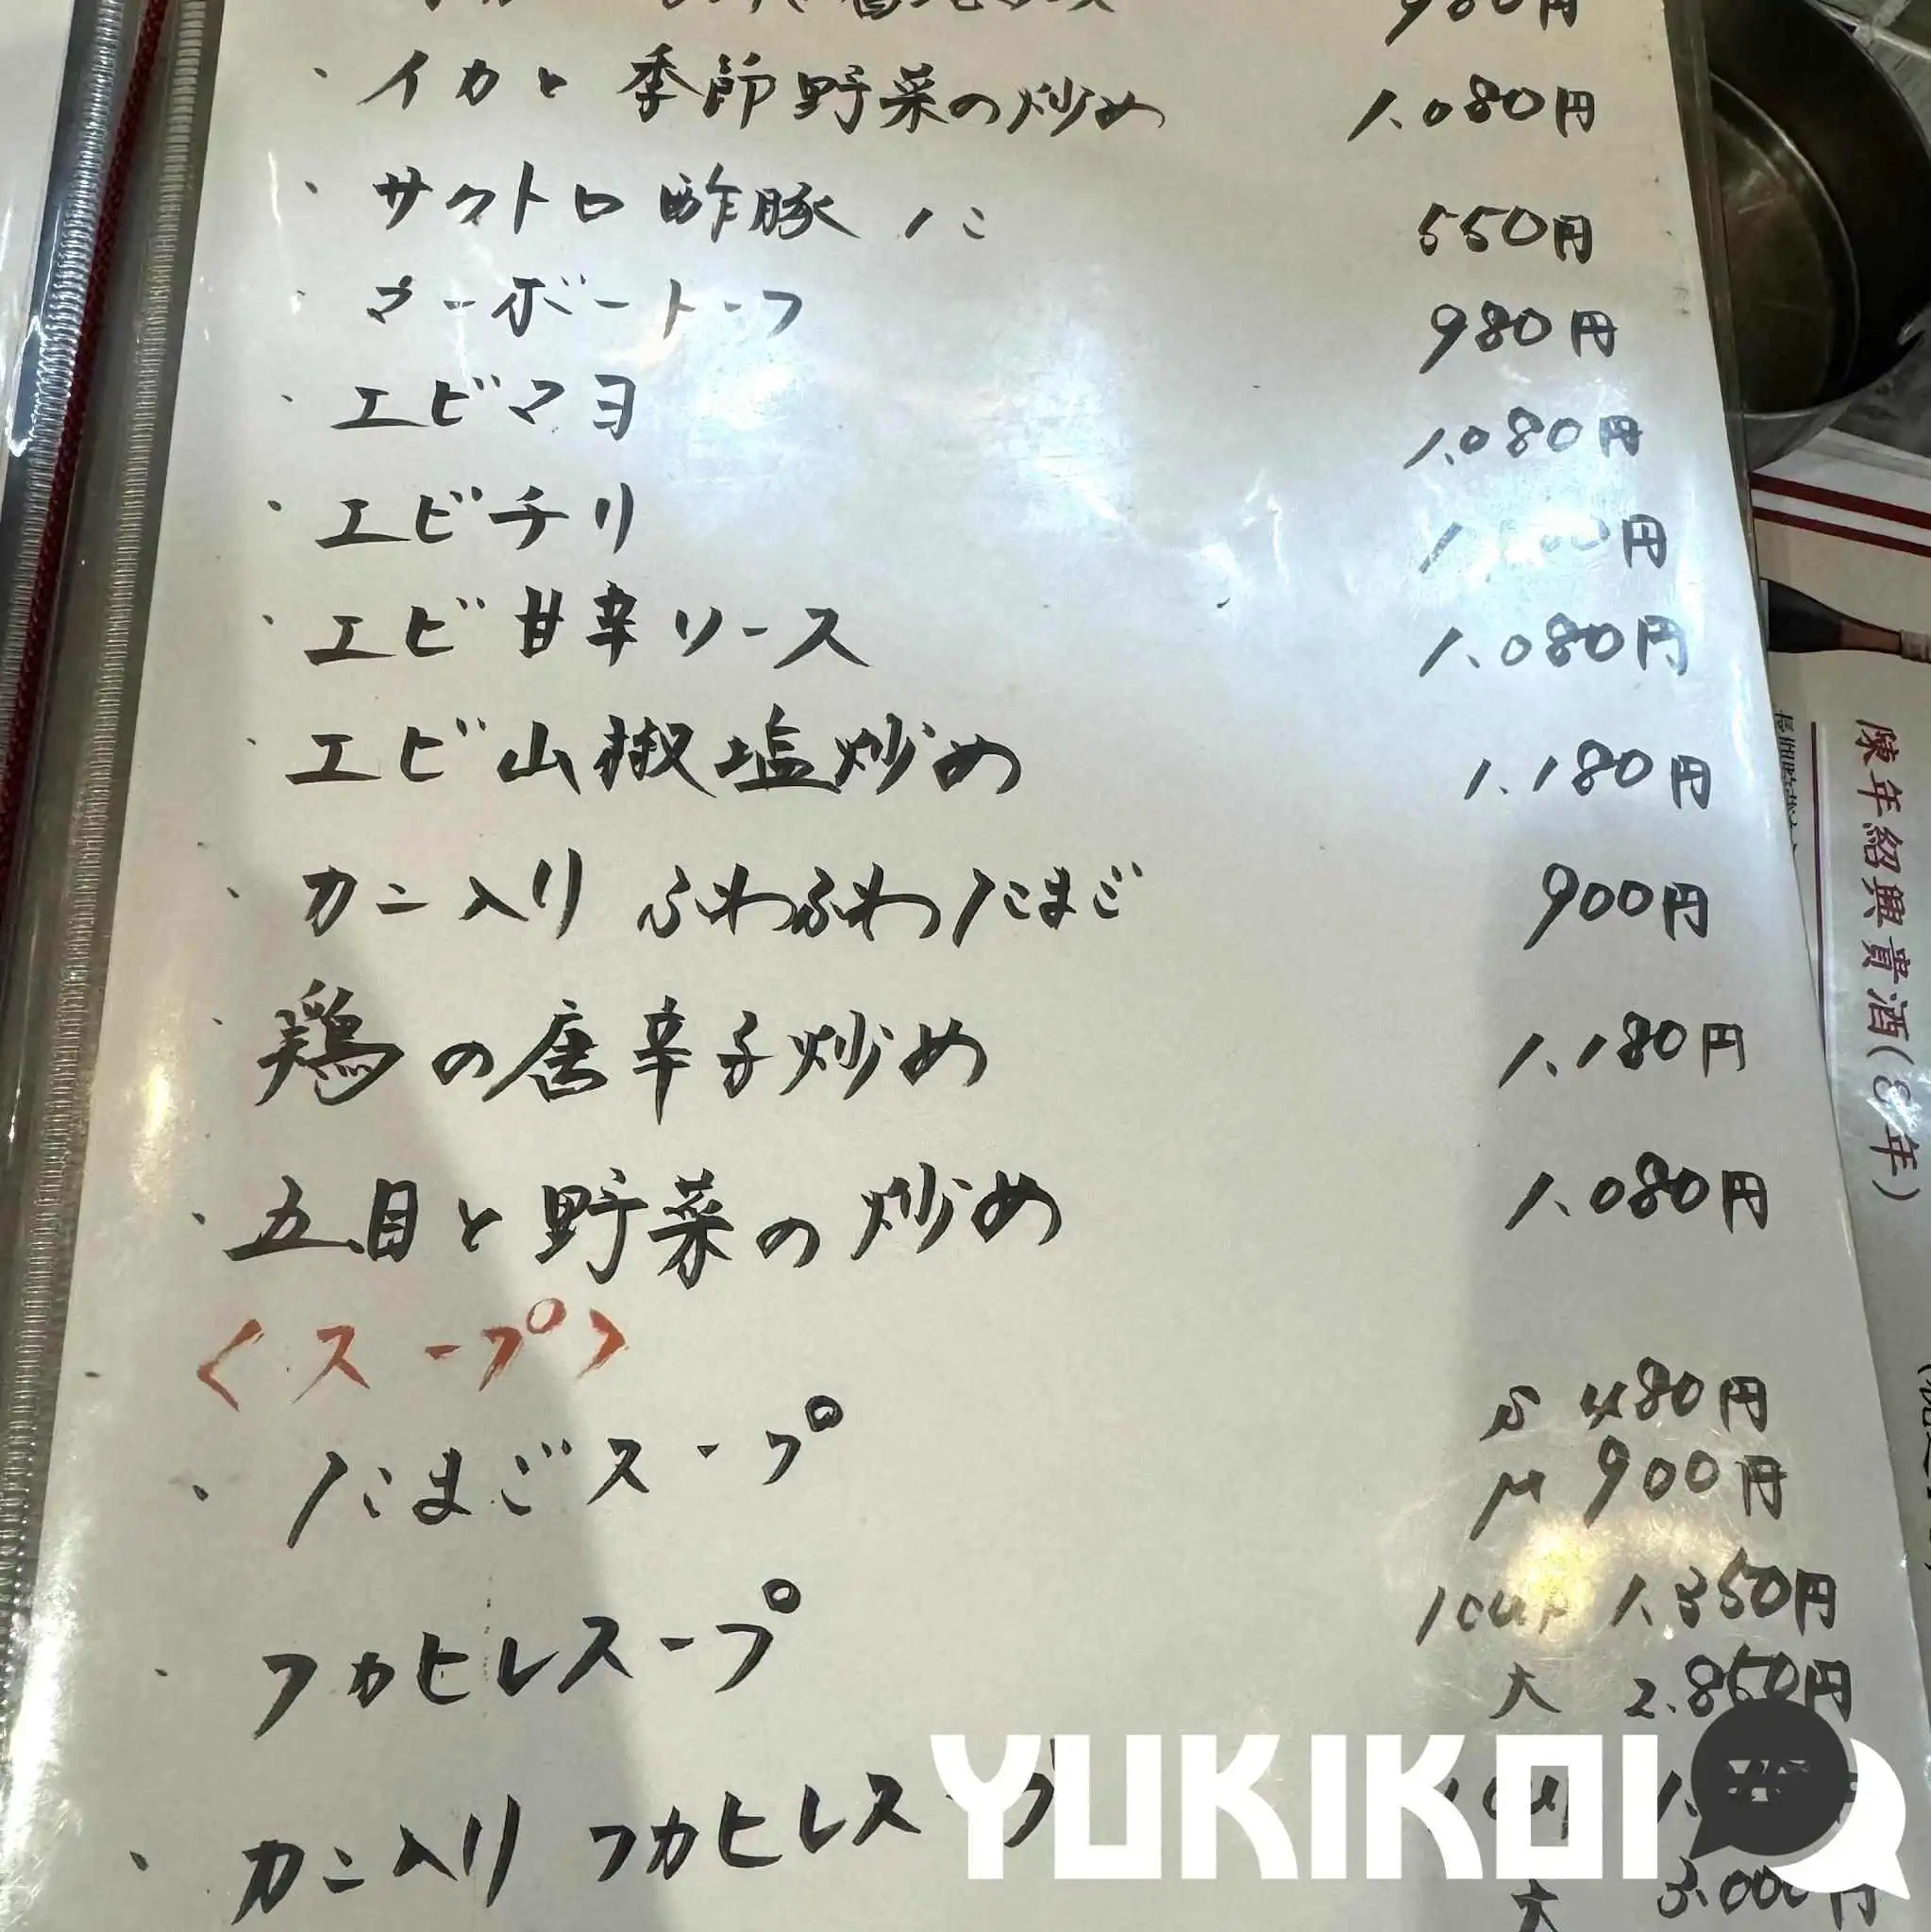 980円
・イカと季節野菜の炒め 1.080円
・サクトロ酢豚 1コ 550円
・マーボートーフ 980円
・エビマヨ 1.080円
・エビチリ 円
・エビ甘辛ソース 1.080円
・エビ山椒塩炒め 1.180円
・カニ入りふわふわたまご 900円
・鶏の唐辛子炒め 1.180円
・五目と野菜の炒め 1.080円
<スープ>
・たまごスープ S 480円
M 900円
・フカヒレスープ 1cup 1.350円
大 2.850円
・カニ入りフカヒレスープ
大 3.000円
陳年紹興貴酒(8年)
YUKIKOI